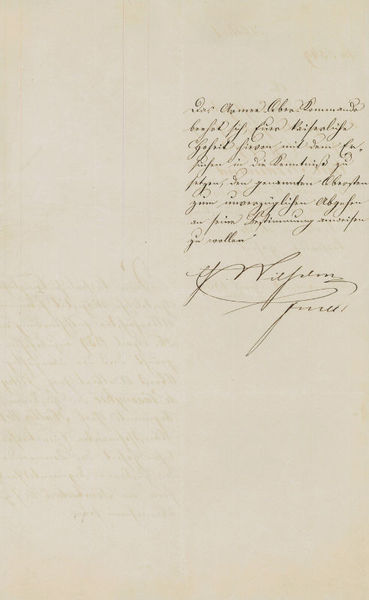 Das Armee-Ober-Kommando
beehrt sich Euer kaiserliche
Hoheit hievon mit dem Er-
suchen in die Kenntniß zu
setzen, den genannten Obersten
zum unverzüglichen Abgehen
an seine Bestimmung anweisen
zu wollen
Wilhelm